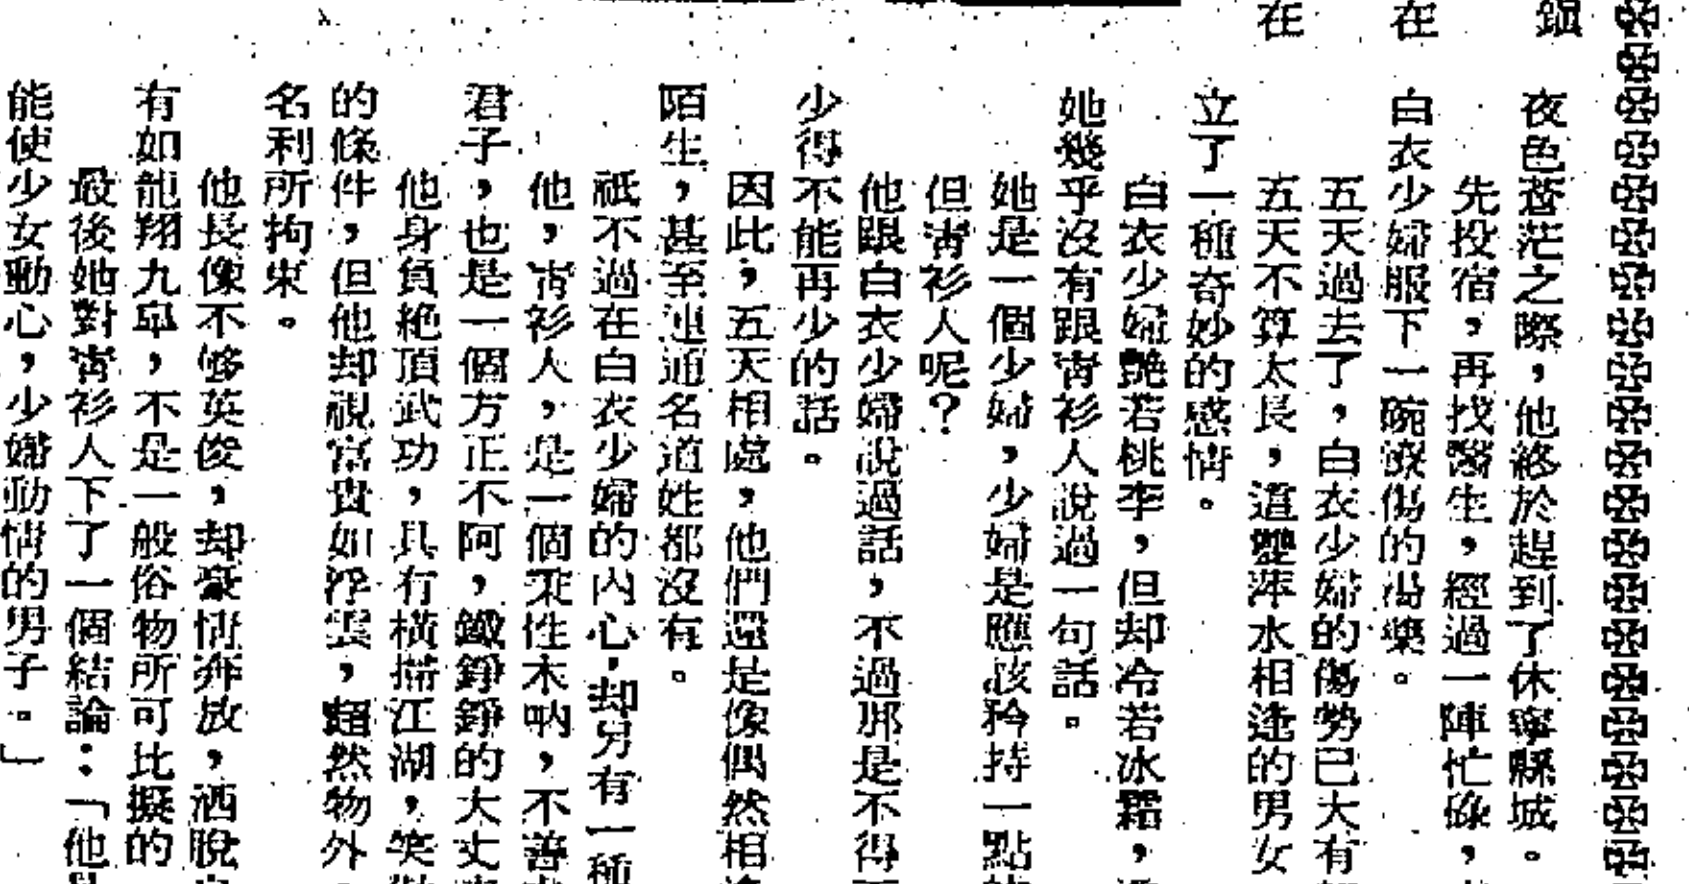 鎮
在
在
夜色蒼茫之際，他終於趕到了休寧縣城。
先投宿，再找醫生，經過一陣忙碌，
白衣少婦服下一碗療傷的湯藥。
五天過去了，白衣少婦的傷勢已大有
五天不算太長，這雙萍水相逢的男女
立了一種奇妙的感情。
白衣少婦艷若桃李，但却冷若冰霜，
她幾乎沒有跟青衫人說過一句話。
她是一個少婦，少婦是應該矜持一點
但青衫人呢？
他跟白衣少婦說過話，不過那是不得
少得不能再少的話。
因此，五天相處，他們還是像偶然相
陌生，甚至連通名道姓都沒有。
祇不過在白衣少婦的內心，却另有一種
他，青衫人，是一個秉性木吶，不善
君子，也是一個方正不阿，鐵錚錚的大丈
他身負絕頂武功，具有橫掃江湖，笑
的條件，但他却視富貴如浮雲，超然物外，
名利所拘束。
他長像不够英俊，却豪情奔放，洒脫
有如龍翔九皐，不是一般俗物所可比擬的
最後她對青衫人下了一個結論：「他
能使少女動心，少婦動情的男子。」